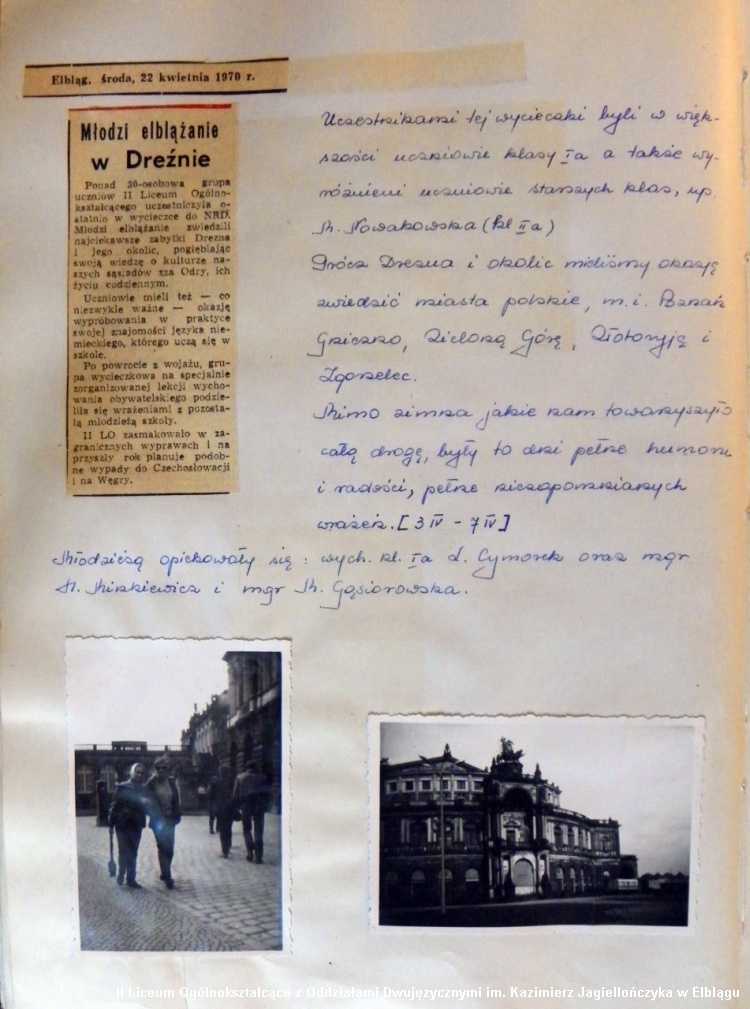 Elbląg, środa, 22 kwietnia 1970 r.
Młodzi elblążanie
w Dreźnie
Ponad 30-osobowa grupa
uczniów II Liceum Ogólno-
kształcącego uczestniczyła o-
statnio w wycieczce do NRD.
Młodzi elblążanie zwiedzili
najciekawsze zabytki Drezna
i jego okolic, pogłębiając
swoją wiedzę o kulturze na-
szych sąsiadów zza Odry, ich
życiu codziennym.
Uczniowie mieli też — co
niezwykle ważne — okazję
wypróbowania w praktyce
swojej znajomości języka nie-
mieckiego, którego uczą się w
szkole.
Po powrocie z wojażu, gru-
pa wycieczkowa na specjalnie
zorganizowanej lekcji wycho-
wania obywatelskiego podzie-
liła się wrażeniami z pozosta-
łą młodzieżą szkoły.
II LO zasmakowało w za-
granicznych wyprawach i na
przyszły rok planuje podob-
ne wypady do Czechosłowacji
i na Węgry.
Uczestnikami tej wycieczki byli w więk-
szości uczniowie klasy Ia a także wy-
różnieni uczniowie starszych klas, np.
M. Nowakowska (kl IIa)
Prócz Drezna i okolic mieliśmy okazję
zwiedzić miasta polskie, m.i. Poznań
Gniezno, Zieloną Górę, Złotoryję i
Zgorzelec.
Mimo zimna jakie nam towarzyszyło
całą drogę, były to dni pełne humoru
i radości, pełne niezapomnianych
wrażeń. [3 IV - 7 IV]
Młodzieżą opiekowały się: wych. kl. Ia d. Cymorek oraz mgr
H. Minkiewicz i mgr M. Gąsiorowska.
II Liceum Ogólnokształcące z Oddziałami Dwujęzycznymi im. Kazimierz Jagiellończyka w Elblągu